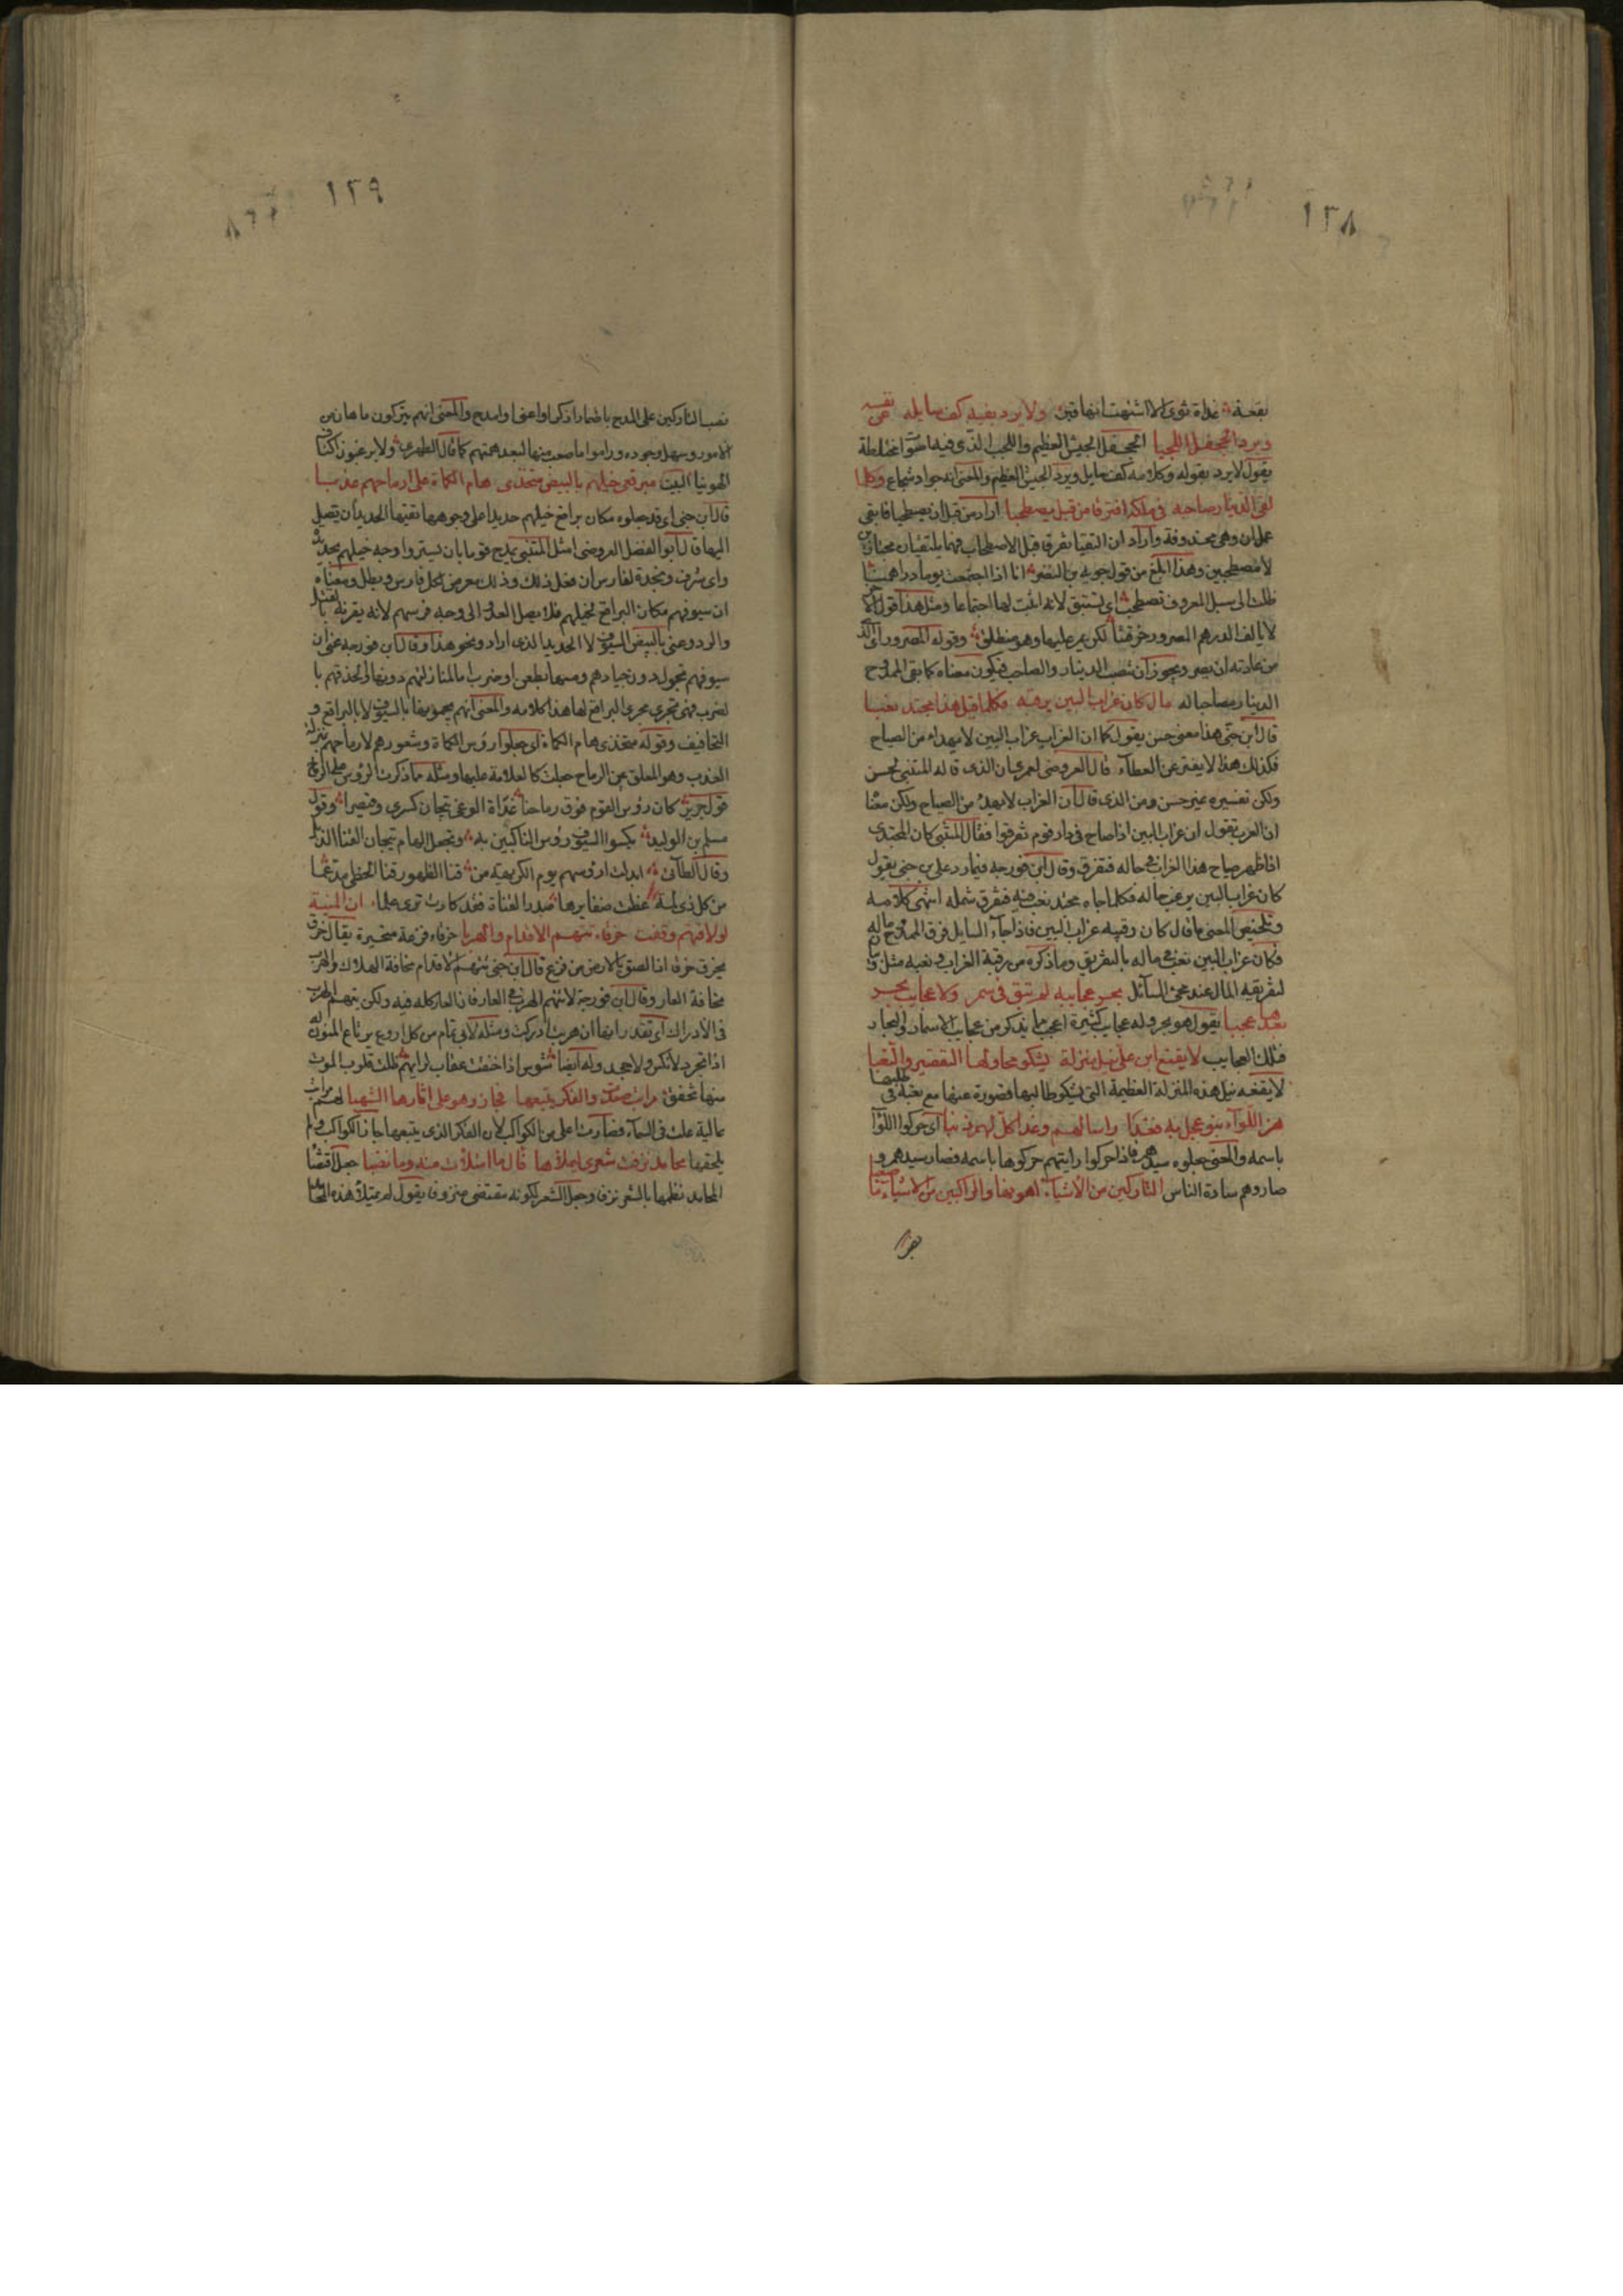 ١٢٨
بقعة غداة ثوى الا اشتهت انها قبر ولا يرد بفيه كف سايله عن نفسه
ويرد الجحفل اللجبا الجحفل الجيش العظيم واللجب الذى فيه اصوات مختلطة
يقول لا يرد بقوله وكلامه كف سايل ويرد الجيش العظيم والمعنى انه جواد شجاع وكلما
لقى الدينار صاحبه فى ملكه افترقا من قبل يصطحبا اراد من قبل ان يصطحبا فابقى
عمل ان وهى محذوفة واراد ان التقيا تفرقا قبل الاصطحاب فهما يلتقيان مجتازين
لا مصطحبين وهذا ابلغ من قول جويه بن النضر انا اذا اجتمعت يوما دراهمنا
ظلت الى سبل المعروف تستبق لانه اثبت لها اجتماعا ومثل هذا قول الآخر
لا يالف الدرهم المصرور خرقتنا لكن يمر عليها وهو منطلق وقوله المصرور اى الذى
من عادته ان يصر ويجوز ان تنصب الدينار والصاحب فيكون معناه كما بقى الممدوح
الدينار مصاحبا له مال كان غراب البين يرقبه فكلما قيل هذا مجتد نعبا
قال ابن جنى هذا معنى حسن يقول كما ان الغراب غراب البين لا يهداء من الصياح
فكذلك هذا لا يفتر عن العطاء قال العروضى لعمرى ان الذى قاله المتنبى لحسن
ولكن تفسيره غير حسن ومن الذى قال ان الغراب لا يهدء من الصياح ولكن معنا
ان العرب تقول ان غراب البين اذا صاح فى دار قوم تفرقوا فقال المتنبى كان المجتدى
اذا ظهر صياح هذا الغراب فى ماله فتفرق وقال ابن فورجه فيما رد على بن جنى يقول
كان غراب البين يرقب ماله فكلما جاه مجتد نعب فيه فتفرق شمله انتهى كلامه
وتلخيص المعنى ما قال كان رقيبه غراب البين فاذا جاء السايل فرق الممدوح ماله
فكان غراب البين نعب فى ماله بالتفريق وما ذكره من رقبة الغراب ونعبه مثل
لتفريقه المال عند مجئ السائل بحر عجايبه لم تبق فى سمر ولا عجايب بحر
بعدها عجبا يقول هو بحر وله عجايب كثيرة اعجب ما يذكر من عجايب الاسمار والبحار
فتلك العجايب لا يقنع ابن على نيل منزلة يشكو محاولها التقصير والتعبا
لا يقنعه نيل هذه المنزلة العظيمة التى يشكو طالبها قصوره عنها مع تعبه فى طلبها
هز اللواء بنو عجل به فغدا راسا لهم وغدا كل لهم ذنبا اى حركوا اللواء
باسمه والمعنى جعلوه سيدهم فاذا حركوا رايتهم حركوها باسمه فصار سيدهم و
صاروهم سادة الناس التاركين من الاشياء اهونها والراكبين من الاشياء ما صعبا
نصب
١٢٩
نصب التاركين على المدح باضمار اذكر او اعنى او امدح والمعنى انهم يتركون ما هان من
الامور وسهل وجوده وراموا ما صعب منها لبعد همتهم كما قال الطهوى ولا يرعون اكناف
الهوينا البيت مبرقعى خيلهم بالبيض متخذى هام الكماة على ارماحهم عذبا
قال ابن جنى اى قد جعلوا مكان براقع خيلهم حديدا على وجوهها تقيها الحديد ان يصل
اليها قال ابو الفضل العروضى امثل المتنبى يمدح قوما بان يستروا اوجه خيلهم بحديد
واى شرف ونجدة لفارس ان فعل ذلك وذلك معرض لكل فارس وبطل ومعناه
ان سيوفهم مكان البراقع لخيلهم فلا يصل العدو الى وجه فرسهم لانه يقرنه بالقتل
والرد وعنى بالبيض السيوف لا الحديد الذى اراد ونحو هذا وقال ابن فورجه عنى ان
سيوفهم تحول دون جيادهم
التخافيف وقوله متخذى هام الكماة اى جعلوا رؤس الكماة وشعورهم لارماحهم بمنزلة
العذب وهو المعلق من الرماح جعلت كالعلامة عليها ومثله مما ذكرت الرؤس على الرماح
قول جرير كان رؤس القوم فوق رماحنا غداة الوغى تيجان كسرى وقيصرا وقول
مسلم بن الوليد يكسوا السيوف رؤس الناكثين به ويجعل الهام تيجان القنا الذبل
وقال الطائى ابدلت ارؤسهم يوم الكريهة من قنا الظهور قنا الخطى مدعما
من كل ذى لمة غطت ضفايرها صدر القناة فقد كادت ترى علما ان المنية
لو لاقتهم وقفت خرقاء تتهم الاقدام والهربا خرقاء فزعة متحيرة يقال خرق
يخرق خرقا اذا لصق بالارض من فزع قال ابن جنى تتهم الاقدام مخافة الهلاك والهرب
مخافة العار وقال ابن فورجة لا تتهم الهرب فى العار فان العار كله فيه ولكن تتهم الهرب
فى الادراك اى تقدر انها ان هربت ادركت ومثله لابى تمام من كل اروع يرتاع المنون له
اذا تجرد لا نكس ولا جحد وله ايضا شوس اذا خفقت عقاب لوايهم ظلت قلوب الموت
منها تخفق مراتب صعدت والفكر يتبعها فجاز وهو على اثارها الشهبا لهم مراتب
عالية علت فى السماء فصارت اعلى من الكواكب لان الفكر الذى يتبعها جاز الكواكب ولم
يلحقها محامد نزفت شعرى ليملأها فآل ما امتلأت منه وما نضبا جعل اقتضا
المحامد نظمها بالشعر نزفا وجعل الشعر لكونه مقتضى منزوفا يقول لم يمتلأ هذه المحامد